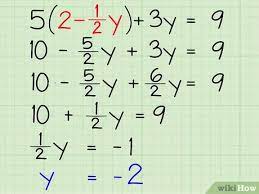 5(2-½y)+3y = 9
10 - 5/2y + 3y = 9
10 - 5/2y + 6/2y = 9
10 + ½y = 9
½y = -1
y = -2
wikiHow